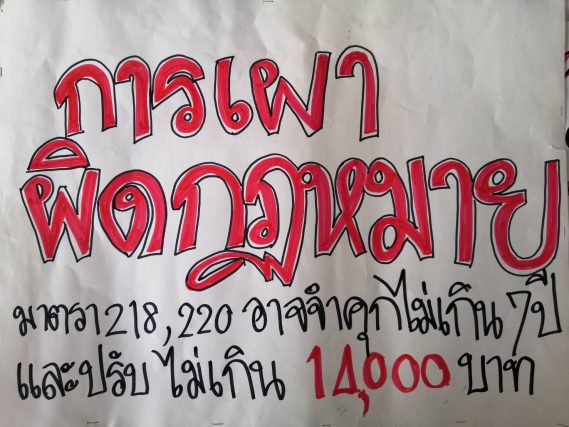 การเผา
ผิดกฎหมาย
มาตรา 218, 220 อาจจำคุกไม่เกิน 7 ปี
และปรับ ไม่เกิน 14,000 บาท